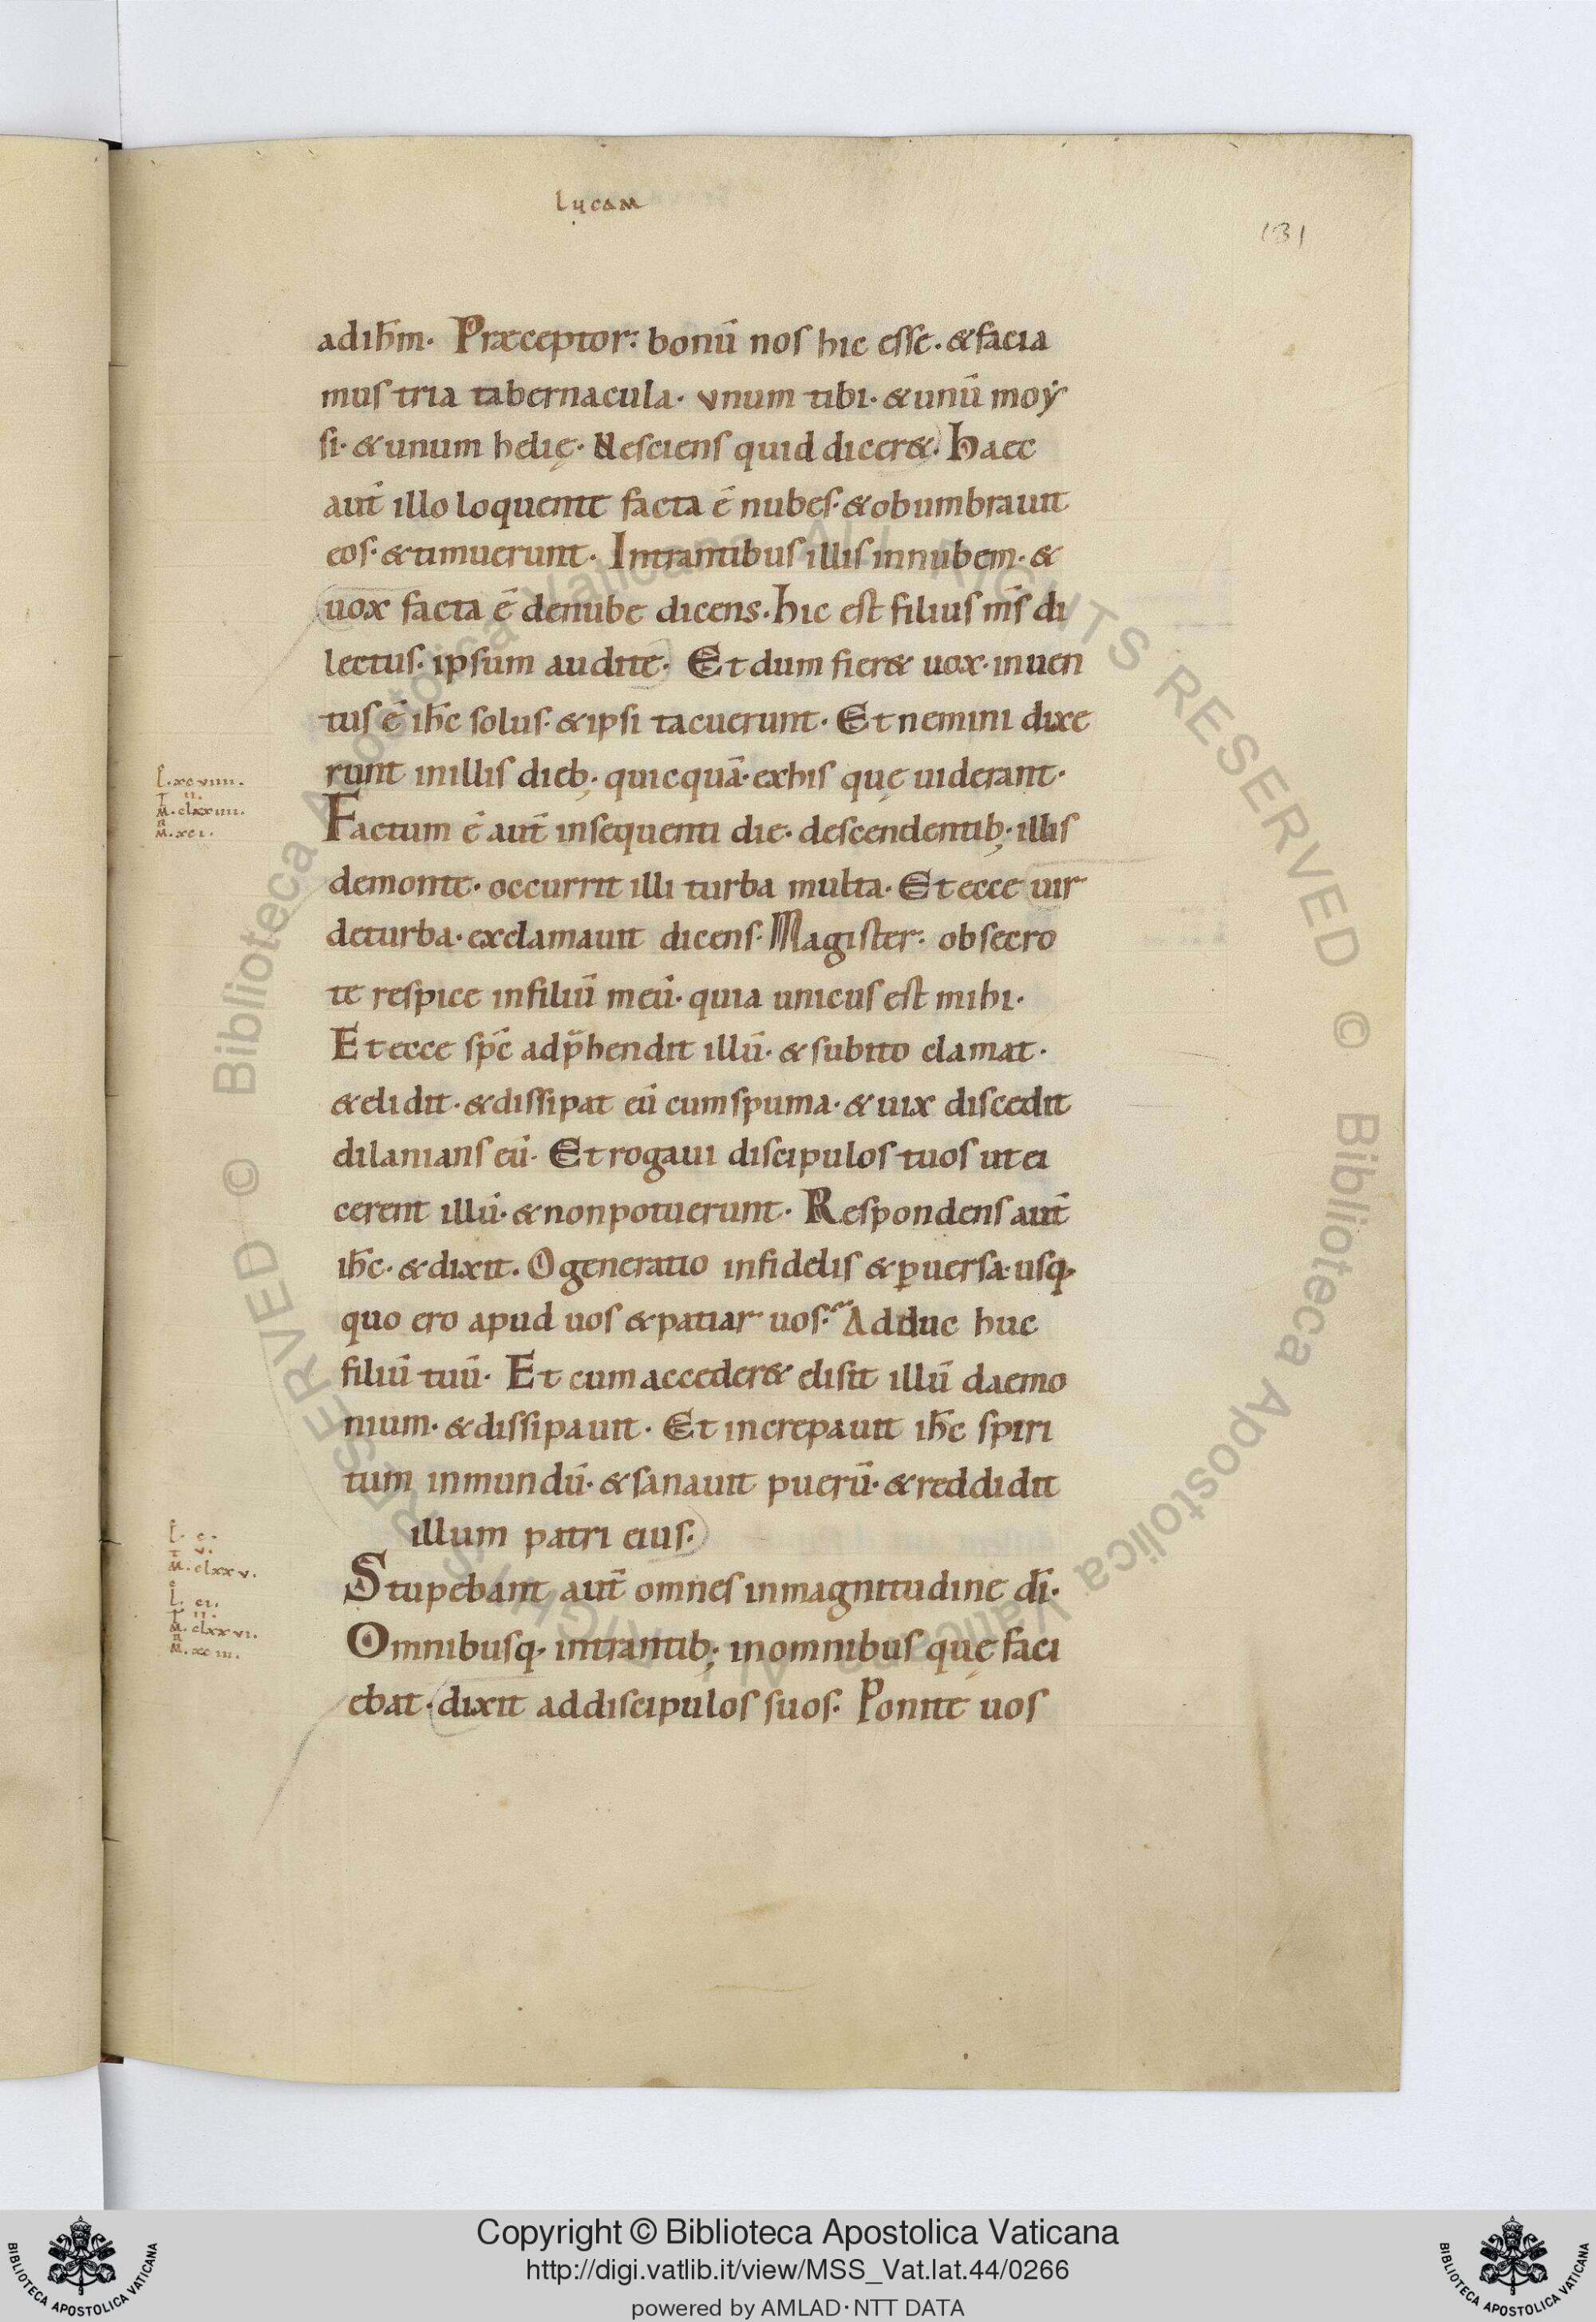 lucam
131
adih̄m. Præceptor: bonū nos hic esse. & facia
mus tria tabernacula. vnum tibi. & unū moy
si. & unum helię. Nesciens quid dicer&. Haec
aut̄ illo loquente facta ē nubes. & obumbrauit
eos. & timuerunt. Intrantibus illis innubem. &
uox facta ē denube dicens. hic est filius m̄s di
lectus. ipsum audite. Et dum fier& uox. inuen
tus ē ih̄c solus. & ipsi tacuerunt. Et nemini dixe
runt inillis dieb; quicquā. exhis quę uiderant.
L. xcviiii.
T ii.
M. clxxiiii.
R
M. xci.
Factum ē aut̄ insequenti die. descendentib; illis
demonte. occurrit illi turba multa. Et ecce uir
deturba. exclamauit dicens. Magister: obsecro
te respice infiliū meū. quia unicus est mihi.
Et ecce sp̄c adp̄hendit illū. & subito clamat.
& elidit. & dissipat eū cum spuma. & uix discedit
dilanians eū. Et rogaui discipulos tuos ut ei
cerent illū. & non potuerunt. Respondens aut̄
ih̄c. & dixit. O generatio infidelis & ꝑuersa. usq.
quo ero apud uos & patiar uos. Adduc huc
filiū tuū. Et cum acceder& elisit illū daemo
nium. & dissipauit. Et increpauit ih̄c spiri
tum inmundū. & sanauit puerū. & reddidit
illum patri eius.
L. c.
T v.
M. clxxv.
Stupebant aut̄ omnes inmagnitudine dī.
L. ci.
T ii.
M. clxxvi.
R
M. xciii.
Omnibusq. mirantib; inomnibus quę faci
ebat. dixit addiscipulos suos. Ponite uos
Copyright © Biblioteca Apostolica Vaticana
http://digi.vatlib.it/view/MSS_Vat.lat.44/0266
powered by AMLAD·NTT DATA
BIBLIOTECA APOSTOLICA VATICANA
BIBLIOTECA APOSTOLICA VATICANA
© Biblioteca Apostolica Vaticana ALL RIGHTS RESERVED © Biblioteca Apostolica Vaticana ALL RIGHTS RESERVED